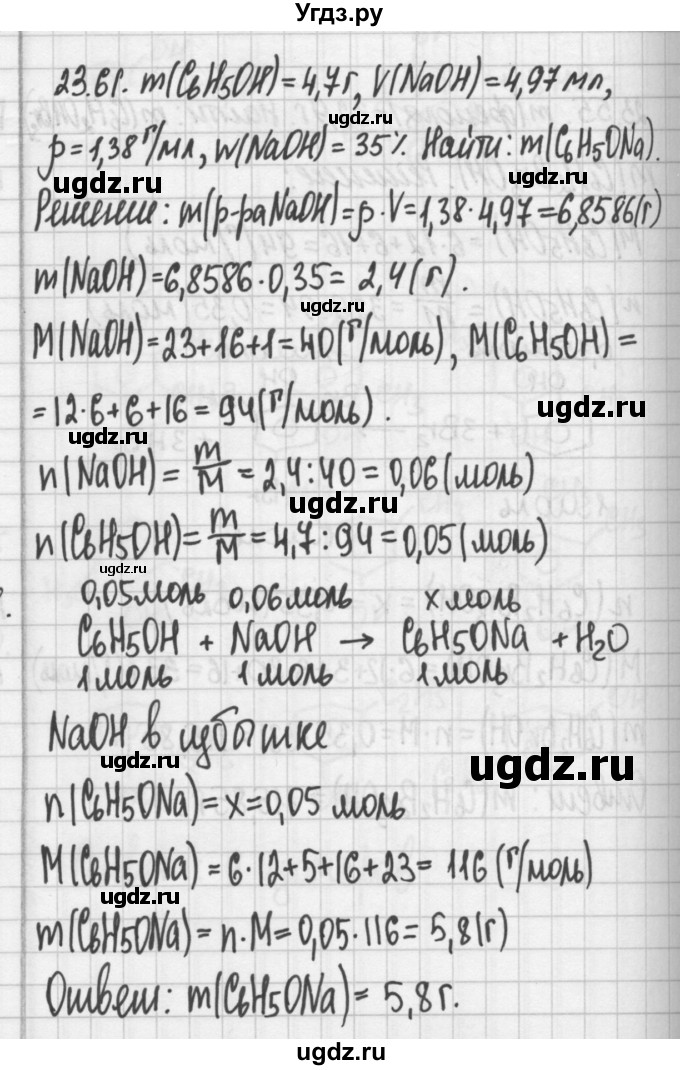 Угдз.ру
23.61. m(C6H5OH)=4,7г, V(NaOH)=4,97мл,
ugdz.ru
ρ=1,38 г/мл, w(NaOH)=35%. Найти: m(C6H5ONa).
ugdz.ru ugdz.ru
Решение: m(р-ра NaOH)=ρ·V=1,38·4,97=6,8586(г)
m(NaOH)=6,8586·0,35= 2,4(г).
ugdz.ru
M(NaOH)=23+16+1=40(г/моль), M(C6H5OH)=
=12·6+6+16=94(г/моль).
ugdz.ru
ugdz.ru
n(NaOH)= m/M = 2,4:40=0,06(моль)
ugdz.ru
n(C6H5OH)= m/M =4,7:94=0,05(моль)
ugdz.ru
0,05моль 0,06моль x моль
ugdz.ru
C6H5OH + NaOH → C6H5ONa + H2O
1 моль 1 моль 1 моль
ugdz.ru ugdz.ru
NaOH в избытке
ugdz.ru ugdz.ru
n(C6H5ONa)=x=0,05 моль
M(C6H5ONa)=6·12+5+16+23= 116(г/моль)
ugdz.ru ugdz.ru
m(C6H5ONa)=n·M=0,05·116= 5,8(г)
ugdz.ru
Ответ: m(C6H5ONa)= 5,8г.
ugdz.ru
ugdz.ru